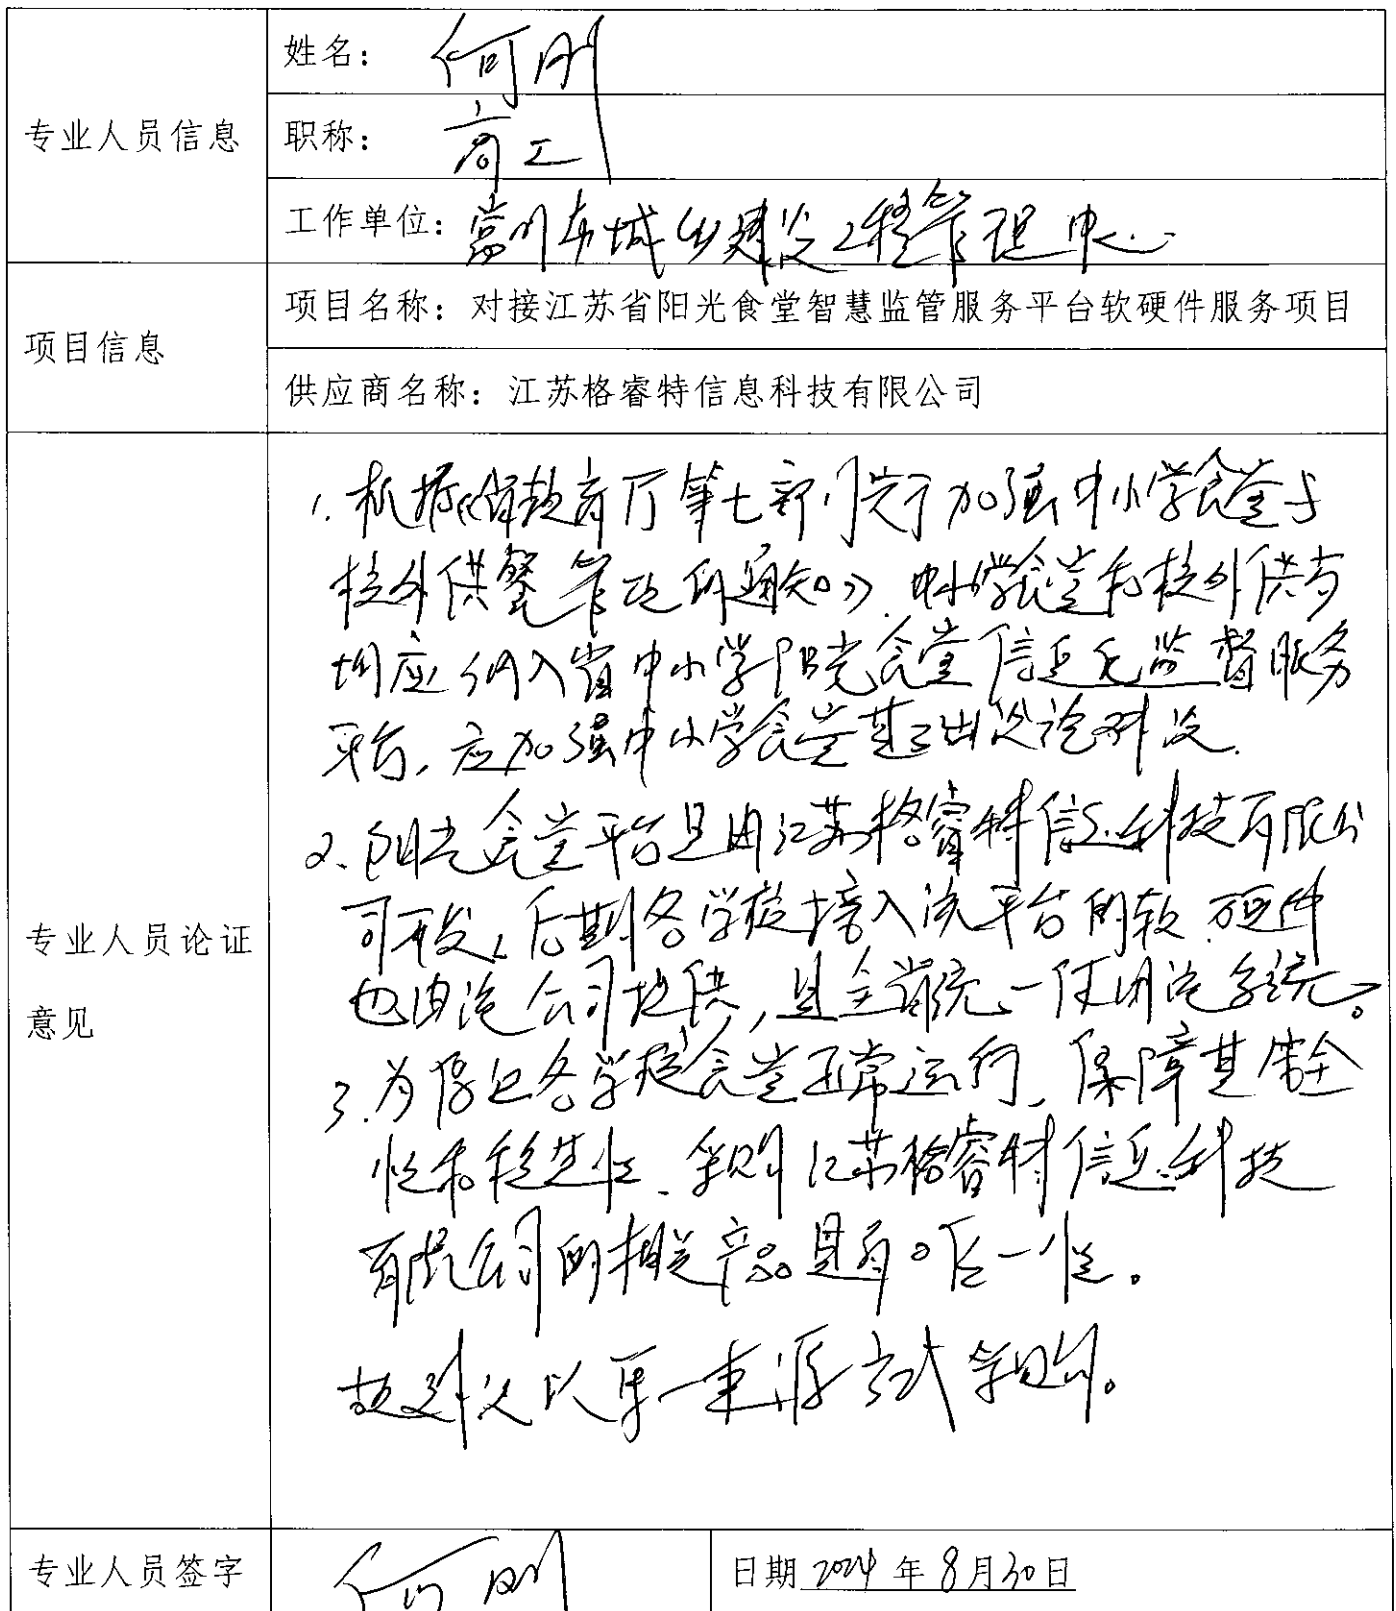 专业人员信息
姓名：何刚
职称：高工
工作单位：常州市城乡建设工程管理中心
项目信息
项目名称：对接江苏省阳光食堂智慧监管服务平台软硬件服务项目
供应商名称：江苏格睿特信息科技有限公司
专业人员论证
意见
1.根据《省教育厅等七部门关于加强中小学食堂与
校外供餐管理的通知》.中小学食堂和校外供
均应纳入省中小学阳光食堂信息化监督服务
平台,应加强中小学食堂基础设施建设.
2、阳光食堂平台是由江苏格睿特信息科技有限公
司开发,后期各学校接入该平台的软、硬件
也由该公司提供,且全省统一使用该系统。
3.为保证各学校食堂正常运行,保障其安全
性和稳定性、采购江苏格睿特信息科技
有限公司的相关产品具有唯一性。
故建议以单一来源方式采购。
专业人员签字
何刚
日期2024年8月30日